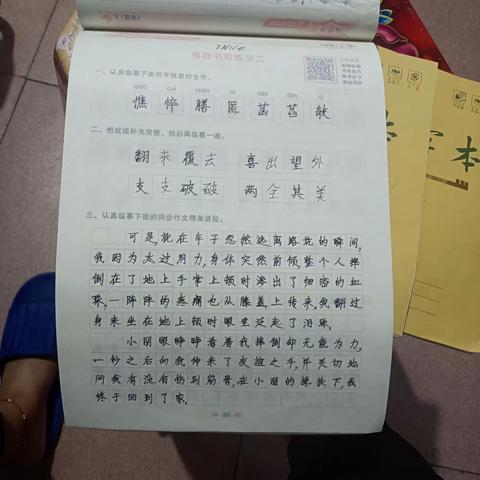 7月11日
卷面书写练习二
一、认真临摹下面田字格里的生字。
qiáo cuì shàn nì hàn dàn
憔 悴 膳 匿 菡 萏 皱
二、把成语补充完整,然后再临摹一遍。
翻来覆去 喜出望外
支支破破 两全其美
三、认真临摹下面的同步作文精美语段。
可是,就在车子忽然逃离路坑的瞬间,
我因为太过用力,身体突然前倾,整个人摔
倒在了地上手掌上顿时渗出了细密的血
珠,一阵阵的疼痛也从膝盖上传来,我翻过
身来坐在地上顿时眼里泛起了泪珠。
小丽眼睁睁看着我摔倒却无能为力,
一秒之后向我伸来了友谊之手,并关切地
问我有没有伤到筋骨,在小丽的搀扶下,我
终于回到了家。
本